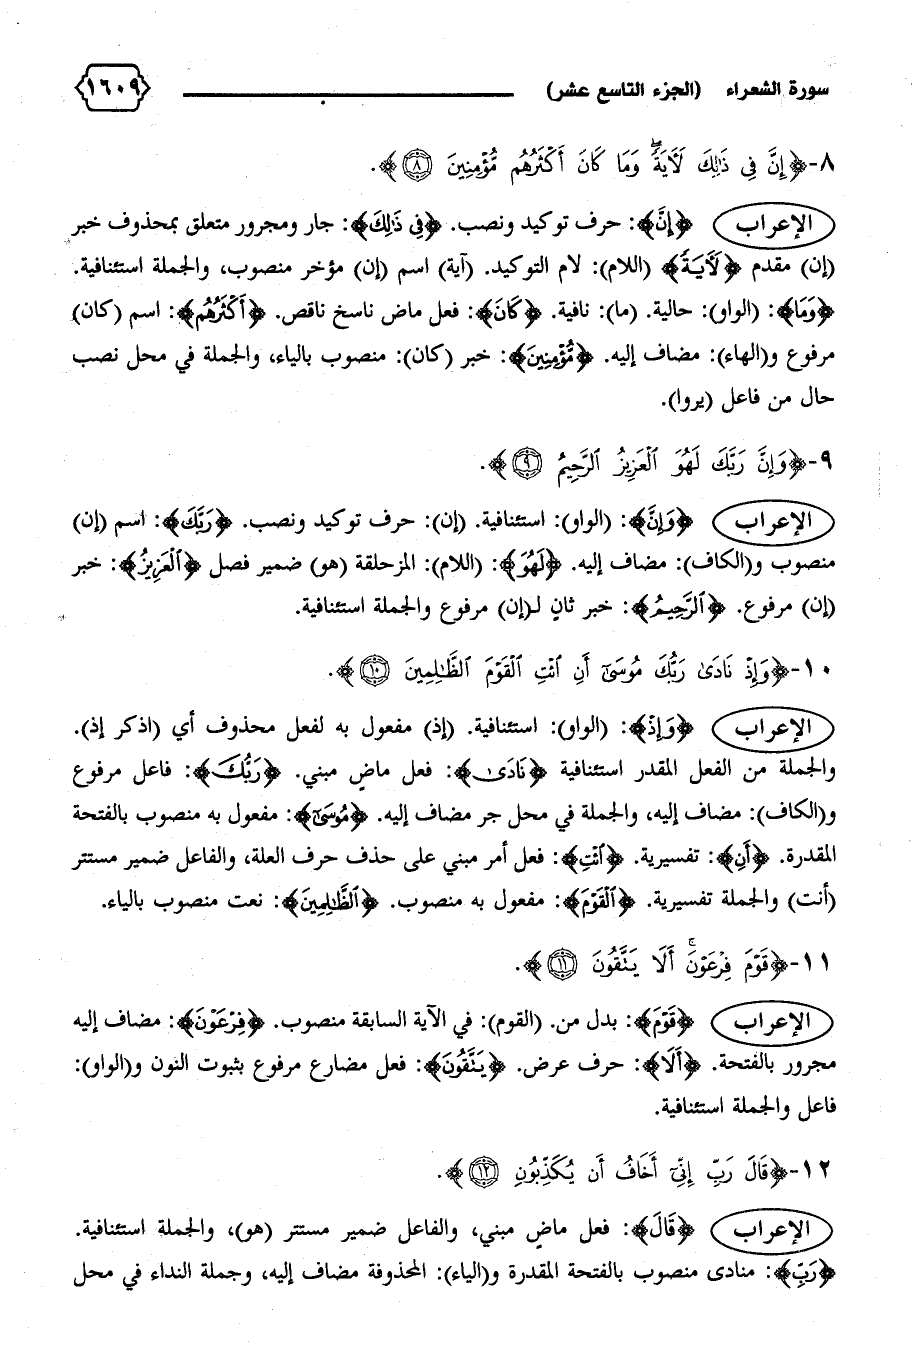 سورة الشعراء (الجزء التاسع عشر) ١٦٠٩
٨-﴿إِنَّ فِي ذَٰلِكَ لَآيَةً ۖ وَمَا كَانَ أَكْثَرُهُم مُّؤْمِنِينَ ۝٨﴾.
الإعراب ﴿إِنَّ﴾: حرف توكيد ونصب. ﴿فِي ذَٰلِكَ﴾: جار ومجرور متعلق بمحذوف خبر
(إن) مقدم ﴿لَآيَةً﴾ (اللام): لام التوكيد. (آية) اسم (إن) مؤخر منصوب، والجملة استئنافية.
﴿وَمَا﴾: (الواو): حالية. (ما): نافية. ﴿كَانَ﴾: فعل ماض ناسخ ناقص. ﴿أَكْثَرُهُم﴾: اسم (كان)
مرفوع و(الهاء): مضاف إليه. ﴿مُّؤْمِنِينَ﴾: خبر (كان): منصوب بالياء، والجملة في محل نصب
حال من فاعل (يروا).
٩-﴿وَإِنَّ رَبَّكَ لَهُوَ ٱلْعَزِيزُ ٱلرَّحِيمُ ۝٩﴾.
الإعراب ﴿وَإِنَّ﴾: (الواو): استئنافية. (إن): حرف توكيد ونصب. ﴿رَبَّكَ﴾: اسم (إن)
منصوب و(الكاف): مضاف إليه. ﴿لَهُوَ﴾: (اللام): المزحلقة (هو) ضمير فصل ﴿ٱلْعَزِيزُ﴾: خبر
(إن) مرفوع. ﴿ٱلرَّحِيمُ﴾: خبر ثانٍ لـ(إن) مرفوع والجملة استئنافية.
١٠-﴿وَإِذْ نَادَىٰ رَبُّكَ مُوسَىٰٓ أَنِ ٱئْتِ ٱلْقَوْمَ ٱلظَّٰلِمِينَ ۝١٠﴾.
الإعراب ﴿وَإِذْ﴾: (الواو): استئنافية. (إذ) مفعول به لفعل محذوف أي (اذكر إذ).
والجملة من الفعل المقدر استئنافية ﴿نَادَىٰ﴾: فعل ماضٍ مبني. ﴿رَبُّكَ﴾: فاعل مرفوع
و(الكاف): مضاف إليه، والجملة في محل جر مضاف إليه. ﴿مُوسَىٰٓ﴾: مفعول به منصوب بالفتحة
المقدرة. ﴿أَنِ﴾: تفسيرية. ﴿ٱئْتِ﴾: فعل أمر مبني على حذف حرف العلة، والفاعل ضمير مستتر
(أنت) والجملة تفسيرية. ﴿ٱلْقَوْمَ﴾: مفعول به منصوب. ﴿ٱلظَّٰلِمِينَ﴾: نعت منصوب بالياء.
١١-﴿قَوْمَ فِرْعَوْنَ ۚ أَلَا يَتَّقُونَ ۝١١﴾.
الإعراب ﴿قَوْمَ﴾: بدل من. (القوم): في الآية السابقة منصوب. ﴿فِرْعَوْنَ﴾: مضاف إليه
مجرور بالفتحة. ﴿أَلَا﴾: حرف عرض. ﴿يَتَّقُونَ﴾: فعل مضارع مرفوع بثبوت النون و(الواو):
فاعل والجملة استئنافية.
١٢-﴿قَالَ رَبِّ إِنِّيٓ أَخَافُ أَن يُكَذِّبُونِ ۝١٢﴾.
الإعراب ﴿قَالَ﴾: فعل ماضٍ مبني، والفاعل ضمير مستتر (هو)، والجملة استئنافية.
﴿رَبِّ﴾: منادى منصوب بالفتحة المقدرة و(الياء): المحذوفة مضاف إليه، وجملة النداء في محل